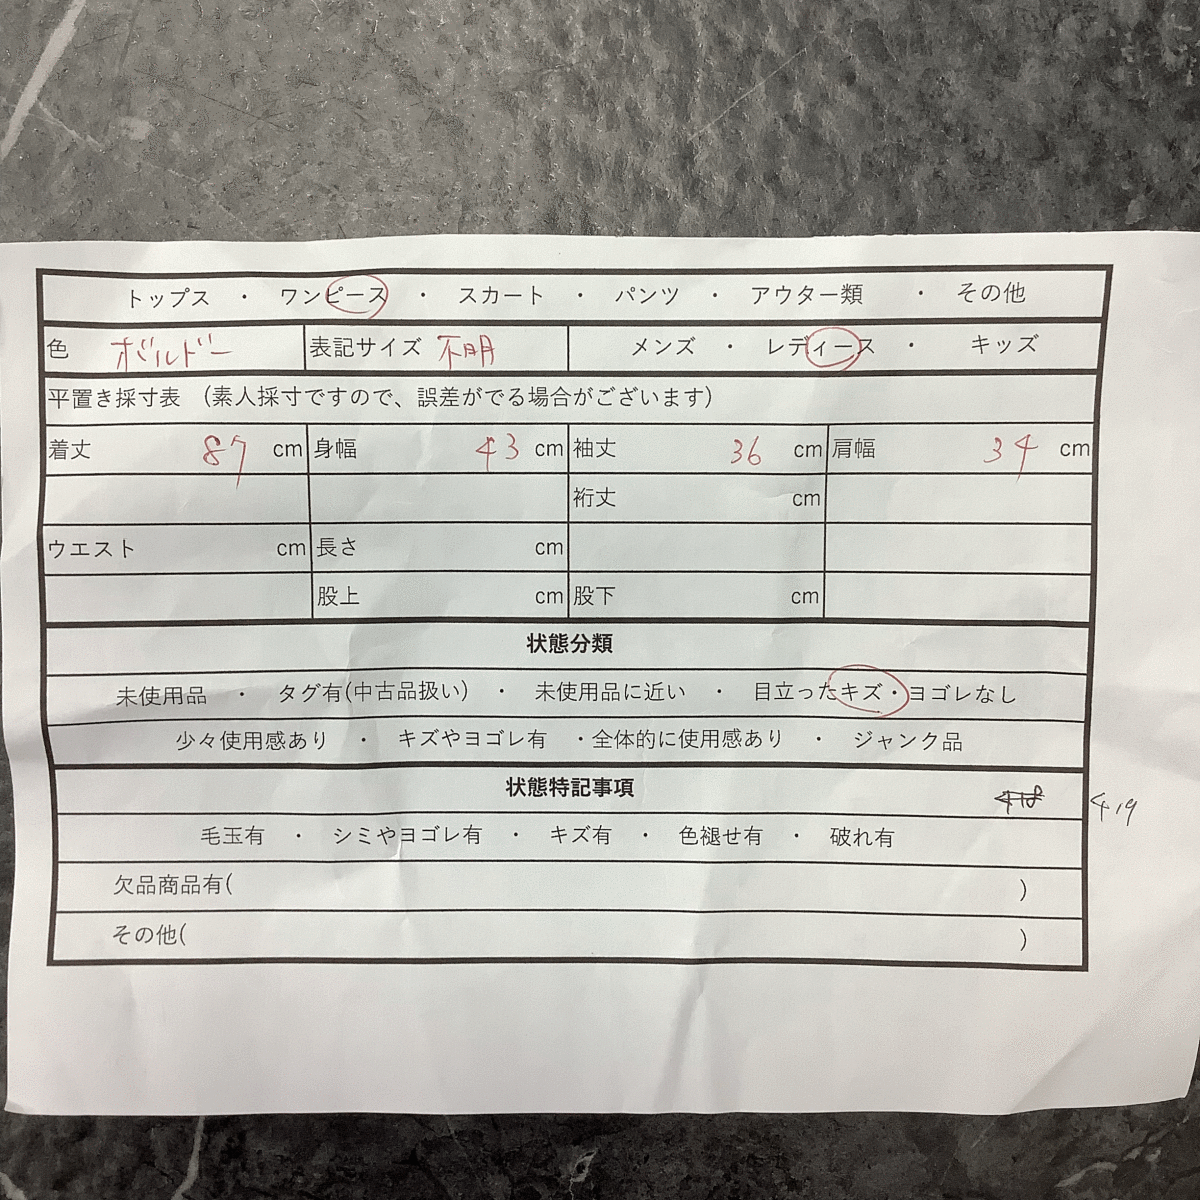 トップス ・ ワンピース ・ スカート ・ パンツ ・ アウター類 ・ その他
色 ボルドー 表記サイズ 不明 メンズ ・ レディース ・ キッズ
平置き採寸表 （素人採寸ですので、誤差がでる場合がございます）
着丈 87 cm 身幅 43 cm 袖丈 36 cm 肩幅 34 cm
裄丈 cm
ウエスト cm 長さ cm
股上 cm 股下 cm
状態分類
未使用品 ・ タグ有(中古品扱い) ・ 未使用品に近い ・ 目立ったキズ・ヨゴレなし
少々使用感あり ・ キズやヨゴレ有 ・全体的に使用感あり ・ ジャンク品
状態特記事項 419
毛玉有 ・ シミやヨゴレ有 ・ キズ有 ・ 色褪せ有 ・ 破れ有
欠品商品有( )
その他( )